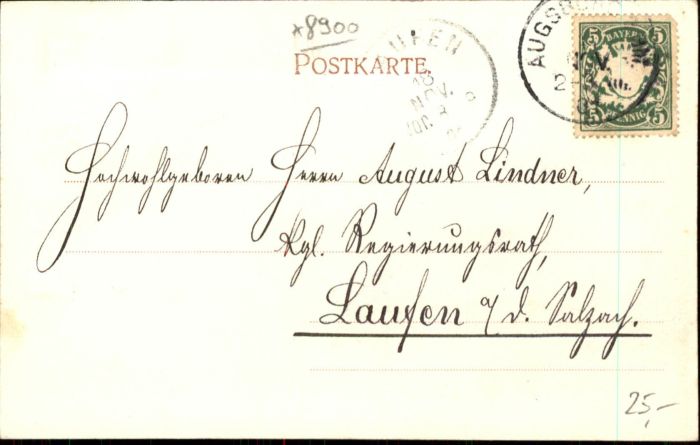 *8900
POSTKARTE.
UFEN
18
NOV.
AUGSBU
NOV.
2
BAYERN
5 5
5 5
PFENNIG
Hochwohlgeboren Herrn August Lindner,
Kgl. Regierungsrath,
Laufen a/d. Salzach.
25,-